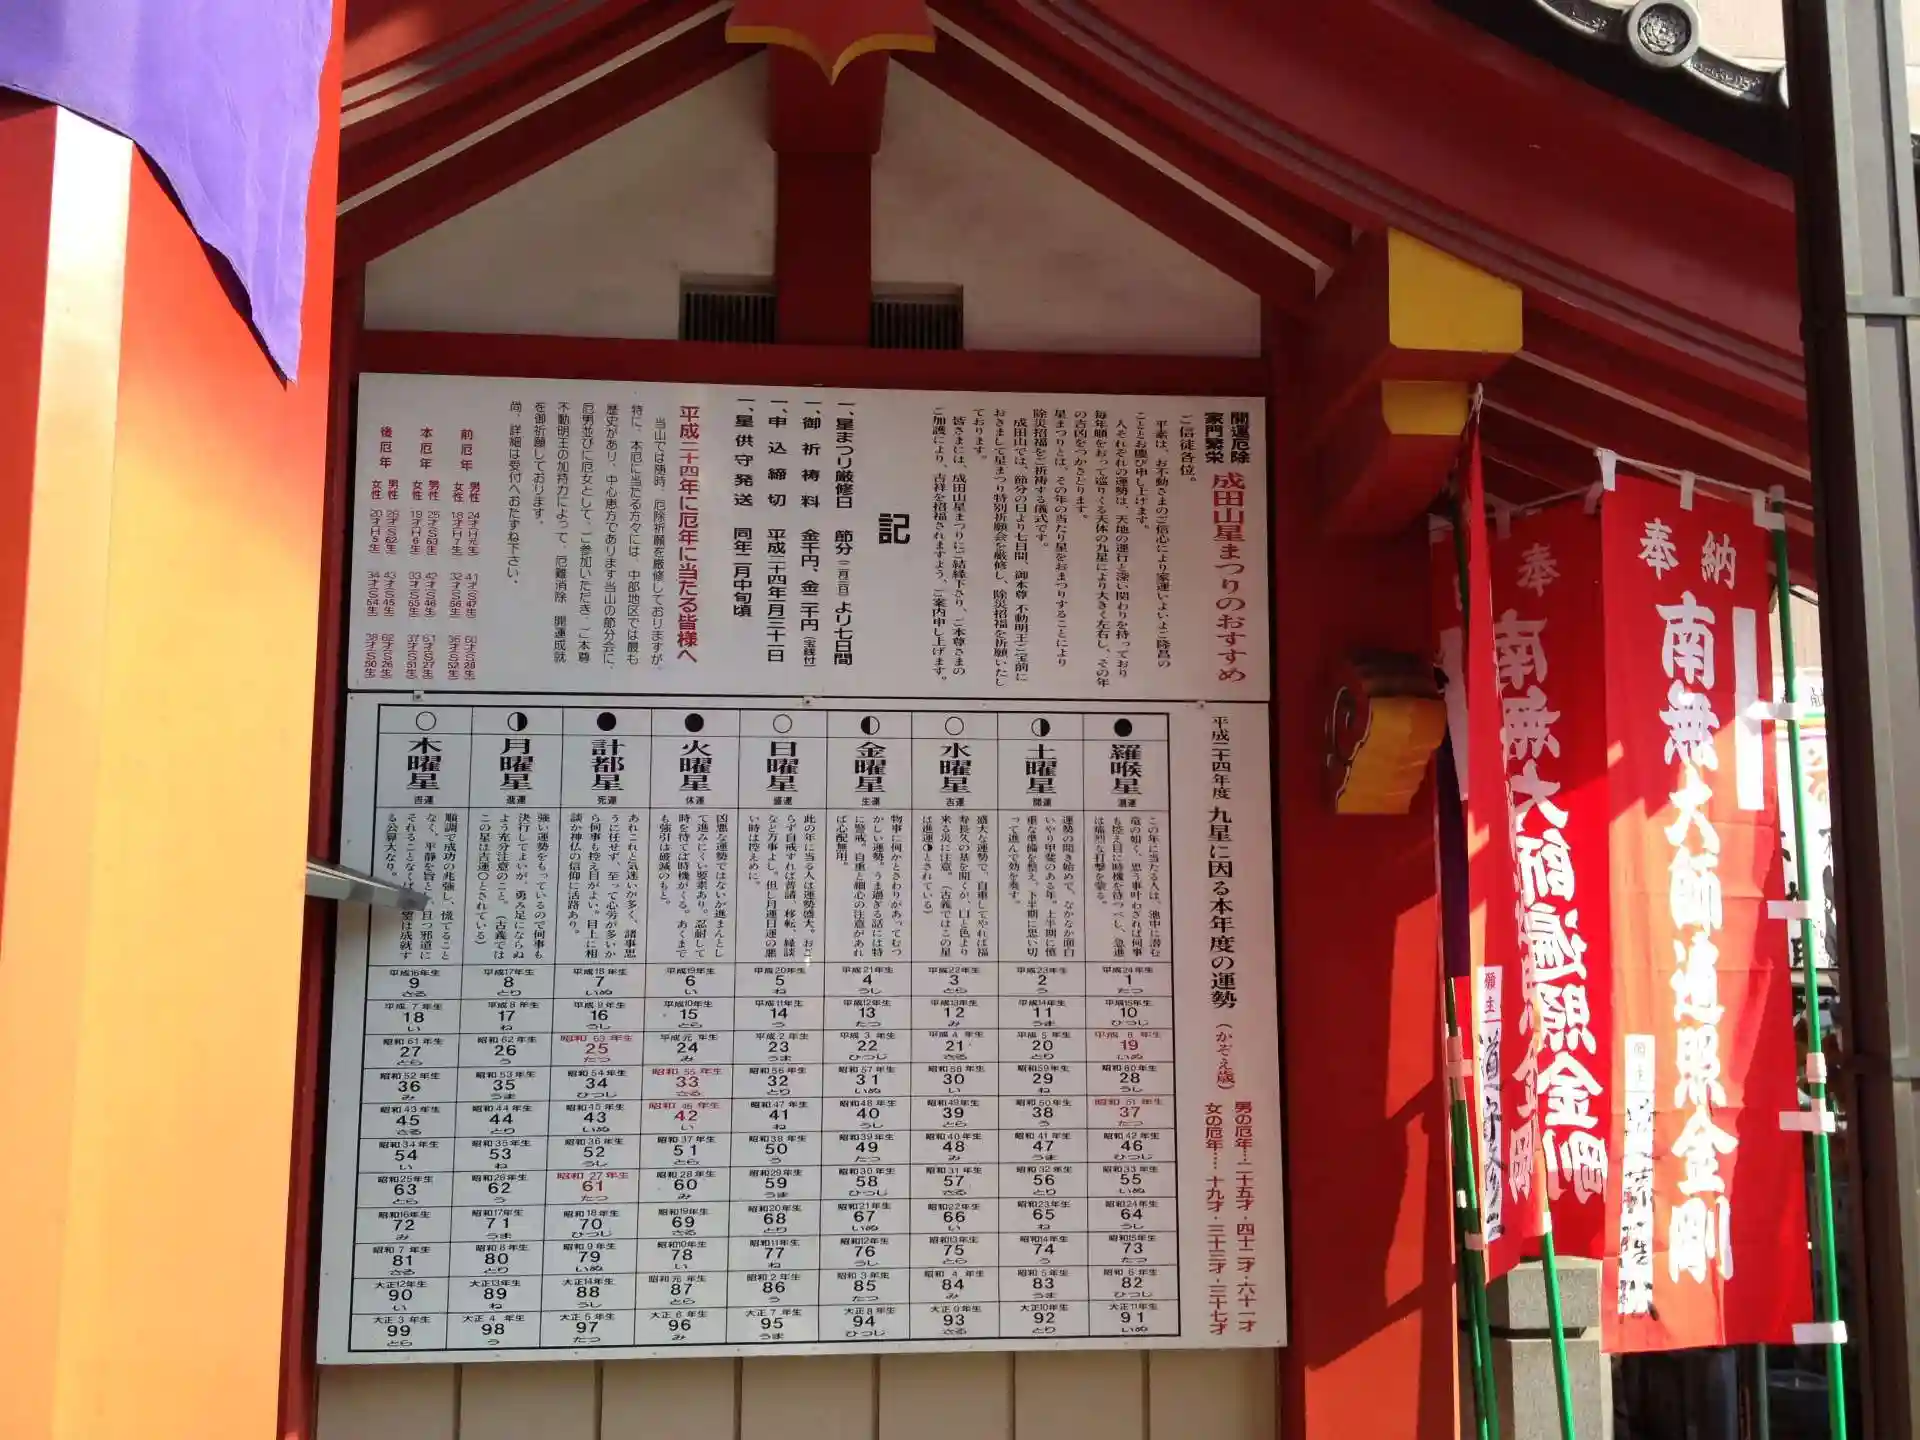 開運厄除
家門繁栄
成田山星まつりのおすすめ
ご信徒各位。
平素は、お不動さまのご信心により家運いよいよご隆昌の
こととお慶び申し上げます。
人それぞれの運勢は、天地の運行と深い関わりを持っており
毎年順をおって巡りくる天体の九星により大きく左右し、その年
の吉凶をつかさどります。
星まつりとは、その年の当たり星をおまつりすることにより
除災招福をご祈祷する儀式です。
成田山では、節分の日より七日間、御本尊 不動明王ご宝前に
おきまして星まつり特別祈願会を厳修し、除災招福を祈願いたし
ております。
皆さまには、成田山星まつりにご結縁下さり、ご本尊さまの
ご加護により、吉祥を招福されますよう、ご案内申し上げます。
記
一、星まつり厳修日 節分(二月三日)より七日間
一、御祈祷料 金千円、金二千円(宝銭付)
一、申込締切 平成二十四年一月三十一日
一、星供守発送 同年二月中旬頃
平成二十四年に厄年に当たる皆様へ
当山では随時、厄除祈願を厳修しておりますが
特に、本厄に当たる方々には、中部地区では最も
歴史があり、中心恵方であります当山の節分会に、
厄男並びに厄女として、ご参加いただき、ご本尊
不動明王の加持力によって、厄難消除 開運成就
を御祈願しております。
尚、詳細は受付へおたずね下さい。
前厄年 男性 24才H元生 41才S47生 60才S28生
女性 18才H7生 32才S56生 36才S52生
本厄年 男性 25才S63生 42才S46生 61才S27生
女性 19才H6生 33才S55生 37才S51生
後厄年 男性 26才S62生 43才S45生 62才S26生
女性 20才H5生 34才S54生 38才S50生
平成二十四年度 九星に因る本年度の運勢(かぞえ歳)
男の厄年…二十五才・四十二才・六十一才
女の厄年…十九才・三十三才・三十七才
木曜星 月曜星 計都星 火曜星 日曜星 金曜星 水曜星 土曜星 羅喉星
吉運 進運 死運 休運 盛運 生運 吉運 開運 滞運
この年に当たる人は、池中に潜む
竜の如く、思う事叶わざれば何事
も控え目に時機を待つべし、急進
は痛烈な打撃を蒙る。
運勢の開き始めで、なかなか面白
いやり甲斐のある年。上半期に慎
重な準備を整え、下半期に思い切
って進んで効を奏す。
盛大な運勢で、自重してやれば福
寿長久の基を開くが、口と色より
来る災に注意。(古義ではこの星
は進運◑とされている)
物事に何かとさわりがあってむつ
かしい運勢。うま過ぎる話には特
に警戒。自重と細心の注意があれ
ば心配無用。
此の年に当る人は運勢盛大。おご
らず自戒すれば普請、移転、縁談
など万事よし。但し月運日運の悪
い時は控えめに。
凶悪な運勢ではないが進まんとし
て進みにくい要素あり。忍耐して
時を待てば時機がくる。あくまで
も強引は破滅のもと。
あれこれと気迷いが多く、諸事思
うに任せず、至って心労が多いか
ら何事も控え目がよい。目上に相
談か神仏の信仰に活路あり。
強い運勢をもっているので何事も
決行してよいが、勇み足にならぬ
よう充分注意のこと。(古義では
この星は吉運○とされている)
順調で成功の兆強し、慌てること
なく、平静を旨とし、且つ邪道に
それることなくば 望は成就す
る公算大なり。
平成16年生 平成17年生 平成18年生 平成19年生 平成20年生 平成21年生 平成22年生 平成23年生 平成24年生
9 8 7 6 5 4 3 2 1
さる とり いぬ い ね うし とら う たつ
平成7年生 平成8年生 平成9年生 平成10年生 平成11年生 平成12年生 平成13年生 平成14年生 平成15年生
18 17 16 15 14 13 12 11 10
い ね うし とら う たつ み うま ひつじ
昭和61年生 昭和62年生 昭和63年生 平成元年生 平成2年生 平成3年生 平成4年生 平成5年生 平成6年生
27 26 25 24 23 22 21 20 19
とら う たつ み うま ひつじ さる とり いぬ
昭和52年生 昭和53年生 昭和54年生 昭和55年生 昭和56年生 昭和57年生 昭和58年生 昭和59年生 昭和60年生
36 35 34 33 32 31 30 29 28
み うま ひつじ さる とり いぬ い ね うし
昭和43年生 昭和44年生 昭和45年生 昭和46年生 昭和47年生 昭和48年生 昭和49年生 昭和50年生 昭和51年生
45 44 43 42 41 40 39 38 37
さる とり いぬ い ね うし とら う たつ
昭和34年生 昭和35年生 昭和36年生 昭和37年生 昭和38年生 昭和39年生 昭和40年生 昭和41年生 昭和42年生
54 53 52 51 50 49 48 47 46
い ね うし とら う たつ み うま ひつじ
昭和25年生 昭和26年生 昭和27年生 昭和28年生 昭和29年生 昭和30年生 昭和31年生 昭和32年生 昭和33年生
63 62 61 60 59 58 57 56 55
とら う たつ み うま ひつじ さる とり いぬ
昭和16年生 昭和17年生 昭和18年生 昭和19年生 昭和20年生 昭和21年生 昭和22年生 昭和23年生 昭和24年生
72 71 70 69 68 67 66 65 64
み うま ひつじ さる とり いぬ い ね うし
昭和7年生 昭和8年生 昭和9年生 昭和10年生 昭和11年生 昭和12年生 昭和13年生 昭和14年生 昭和15年生
81 80 79 78 77 76 75 74 73
さる とり いぬ い ね うし とら う たつ
大正12年生 大正13年生 大正14年生 昭和元年生 昭和2年生 昭和3年生 昭和4年生 昭和5年生 昭和6年生
90 89 88 87 86 85 84 83 82
い ね うし とら う たつ み うま ひつじ
大正3年生 大正4年生 大正5年生 大正6年生 大正7年生 大正8年生 大正9年生 大正10年生 大正11年生
99 98 97 96 95 94 93 92 91
とら う たつ み うま ひつじ さる とり いぬ
奉納
南無大師遍照金剛
奉
南無大師遍照金剛
願主